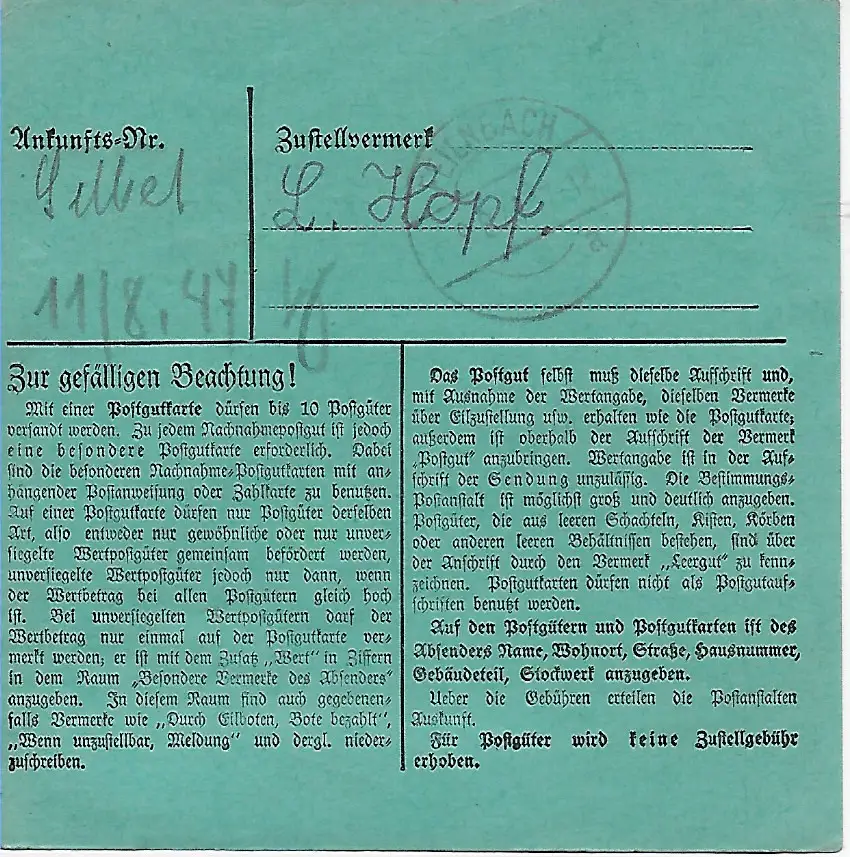 Ankunfts-Nr.
Selbst
11/8. 47
Zustellvermerk
L. Hopf.
Zur gefälligen Beachtung!
Mit einer Postgutkarte dürfen bis 10 Postgüter
versandt werden. Zu jedem Nachnahmepostgut ist jedoch
eine besondere Postgutkarte erforderlich. Dabei
sind die besonderen Nachnahme-Postgutkarten mit an-
hängender Postanweisung oder Zahlkarte zu benutzen.
Auf einer Postgutkarte dürfen nur Postgüter derselben
Art, also entweder nur gewöhnliche oder nur unver-
siegelte Wertpostgüter gemeinsam befördert werden,
unversiegelte Wertpostgüter jedoch nur dann, wenn
der Wertbetrag bei allen Postgütern gleich hoch
ist. Bei unversiegelten Wertpostgütern darf der
Wertbetrag nur einmal auf der Postgutkarte ver-
merkt werden; er ist mit dem Zusatz „Wert" in Ziffern
in dem Raum „Besondere Vermerke des Absenders"
anzugeben. In diesem Raum sind auch gegebenen-
falls Vermerke wie „Durch Eilboten, Bote bezahlt",
„Wenn unzustellbar, Meldung" und dergl. nieder-
zuschreiben.
Das Postgut selbst muß dieselbe Aufschrift und,
mit Ausnahme der Wertangabe, dieselben Vermerke
über Eilzustellung usw. erhalten wie die Postgutkarte;
außerdem ist oberhalb der Aufschrift der Vermerk
„Postgut" anzubringen. Wertangabe ist in der Auf-
schrift der Sendung unzulässig. Die Bestimmungs-
Postanstalt ist möglichst groß und deutlich anzugeben.
Postgüter, die aus leeren Schachteln, Kisten, Körben
oder anderen leeren Behältnissen bestehen, sind über
der Anschrift durch den Vermerk „Leergut" zu kenn-
zeichnen. Postgutkarten dürfen nicht als Postgutauf-
schriften benutzt werden.
Auf den Postgütern und Postgutkarten ist des
Absenders Name, Wohnort, Straße, Hausnummer,
Gebäudeteil, Stockwerk anzugeben.
Ueber die Gebühren erteilen die Postanstalten
Auskunft.
Für Postgüter wird keine Zustellgebühr
erhoben.